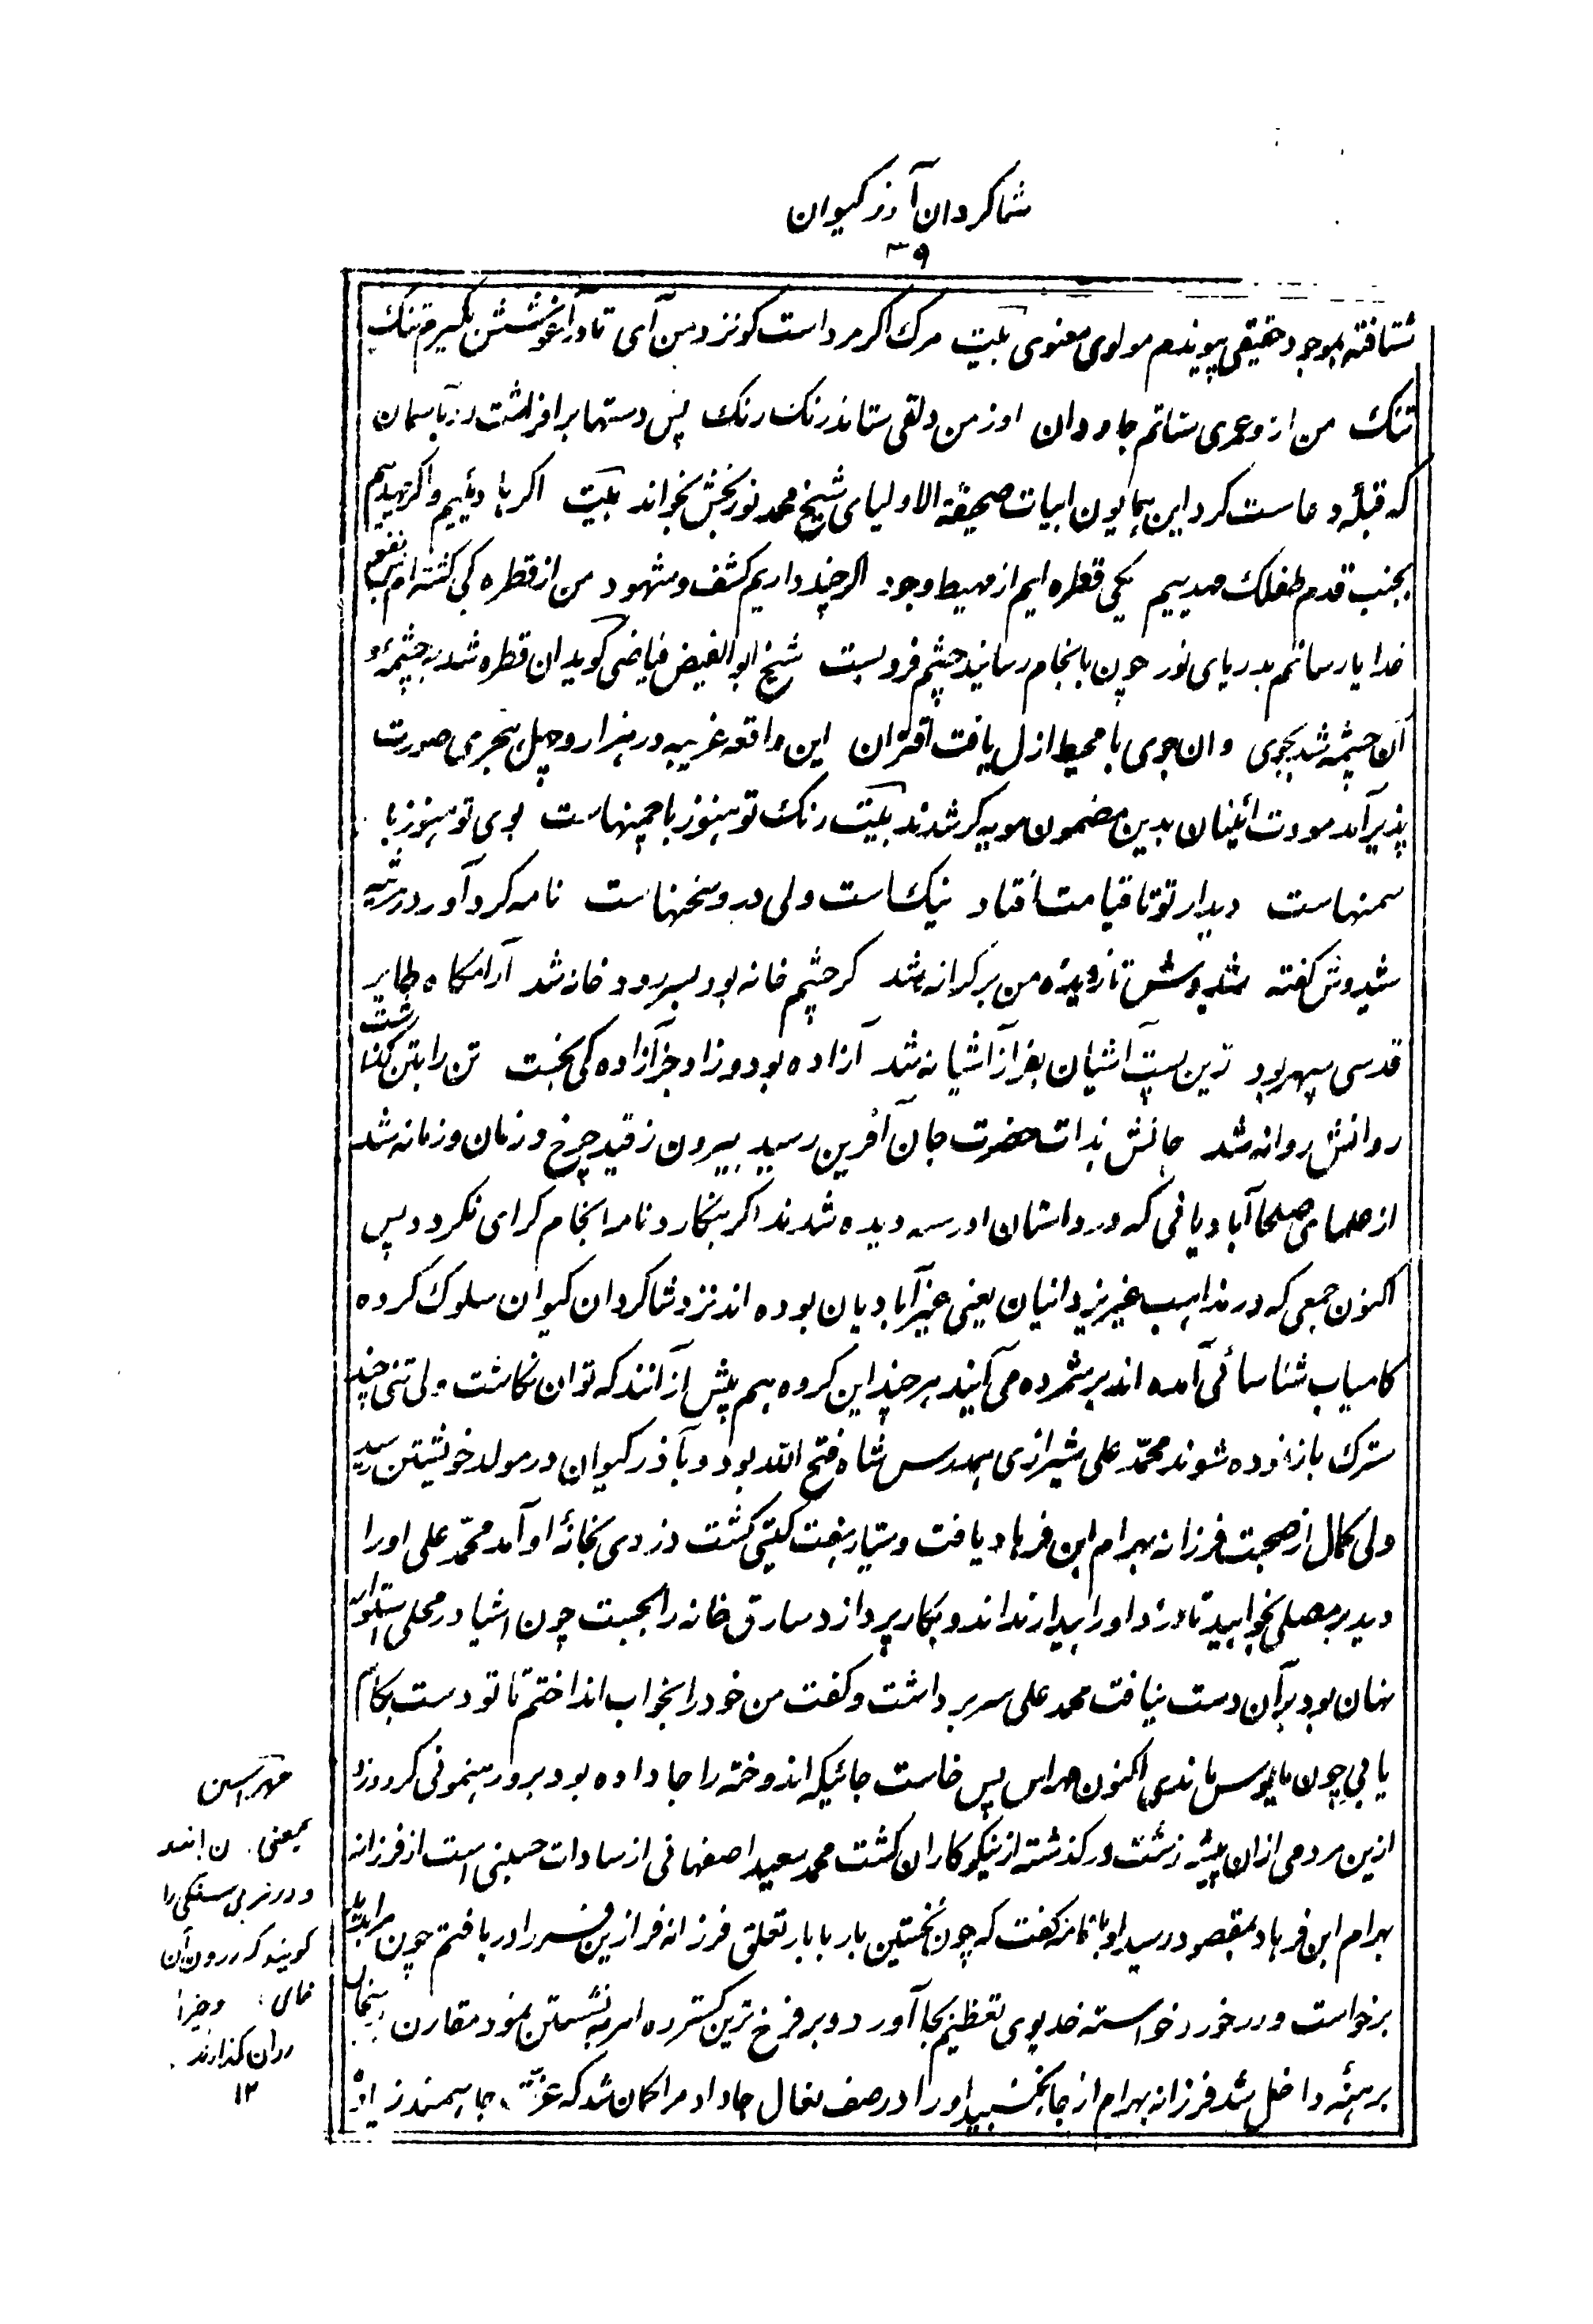 شاکردان آذر کیوان
۳۹
شتافته بموجود حقیقی پیوندم مولوی معنوی بیت مرک اکر مرد است کو نزد من آی تا در آغوشش بکیرم تنک
تنک من ازو عمری ستانم جاودان او ز من دلقی ستاند رنک رنک پس دستها برافراشت و بآسمان
که قبلهٔ دعاست کرد این همایون ابیات صحیفة الاولیای شیخ محمد نوربخش بخواند بیت اکر هادئیم و اکر مهدییم
بجنب قدم طفلک مهدییم یکی قطره ایم از محیط وجود اکر چند داریم کشف و شهود من از قطره کی کشته ام بس نفور
خدایا رسانم بدریای نور چون بانجام رسانید چشم فروبست شیخ ابو الفیض فیاضی کوید ان قطره شد به چشمهٔ و
آن چشمه شد بجوی وان جوی با محیط ازل یافت اقتران این واقعه غریبه در هزار و چهل هجری صورت
پذیر آمد مودت ائینان بدین مضمون مویه کر شدند بیت رنک تو هنوز با چمنهاست بوی تو هنوز با
سمنهاست دیدار تو تا قیامت افتاد نیک است ولی درو سخنهاست نامه کرد آور در مرثیه
شیدوش کفته شیدوش تا ز دیدهٔ من بر کرانه شد کر چشم خانه بود بسر رود خانه شد آرامکاه طایر
قدسی سپهر بود زین پست آشیان بفراز آشیانه شد آزاده بود و زاد جز آزاده کی نجست تن را بتن کذاشت
روانش روانه شد جانش بذات حضرت جان آفرین رسید بیرون ز قید چرخ و زمان و زمانه شد
از صلحای آباد یانی که در داستان ادرسه دیده شدند اکر بنکارد نامه انجام کرای نکردد پس
اکنون جمعی که در مذاهب غیر یزدانیان یعنی غیر آبادیان بوده اند نزد شاکردان کیوان سلوک کرده
کامیاب شناسائی آمده اند برشمرده می آیند هر چند این کروه هم بیش از آنند که توان نکاشت ولی تنی چند
سترک باز نموده شوند محمد علی شیرازی همدرس شاه فتح الله بود و بآذر کیوان در مولد خویشتن رسید
ولی کمال از صحبت فرزانه بهرام ابن فرهاد یافت و سیار هفت کیتی کشت دزدی بخانهٔ او آمد محمد علی او را
دید بر مصلی بخوابید تا دزد او را بیدار نداند و بکار پردازد سارق خانه را بجست چون اشیا در محلی استوار
نهان بود بر آن دست نیافت محمد علی سر برداشت و کفت من خود را بخواب انداختم تا تو دست بکام
یابی چون مایوس ماندی اکنون مهراس پس خاست جائیکه اندوخته را جا داده بود برو رهنمونی کرد دزد
ازین مردمی ازان پیشه زشت در کذشته از نیکو کاران کشت محمد سعید اصفهانی از سادات حسینی است از فرزانه
بهرام ابن فرهاد بمقصود رسید او با نامه کفت که چون نخستین بار بابار تعلق فرزانه فرازین فر را دریافتم چون مرا بدید
برخواست و در خورد خواسته خدیوی تعظیم بجا آورد و بر فرخ ترین کسترده امر به نشستن نمود مقارن
برهنهٔ داخل شد فرزانه بهرام از جا نجنبید او را در صف نعال جا داد مرا کمان شد که عزت جاهمند زیاده
مهراسین
بمعنی
و در نرمی سنکی را
کویند که درون آن
خالی و چیزها
دران کذارند
۱۲